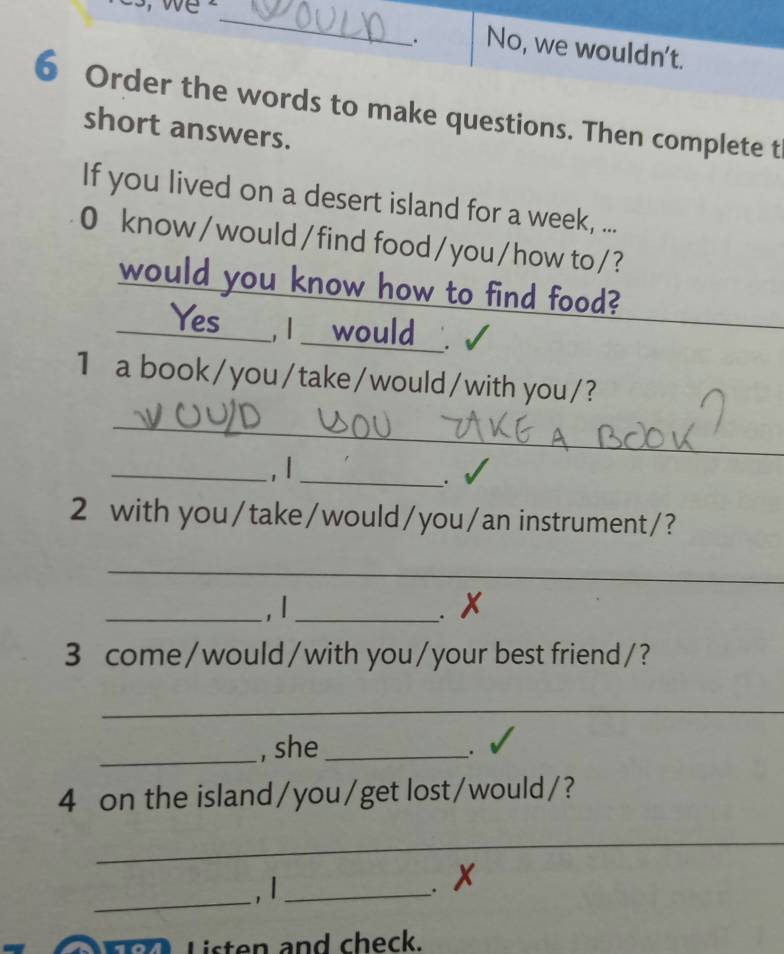 we
WOULD .
No, we wouldn't.
6 Order the words to make questions. Then complete
short answers.
If you lived on a desert island for a week, ...
0 know/would/find food/you/how to/?
would you know how to find food?
Yes, I would. ✓
1 a book/you/take/would/with you/?
WOULD YOU TAKE A BOOK?
, I . ✓
2 with you/take/would/you/an instrument/?
, I . ✗
3 come/would/with you/your best friend/?
, she . ✓
4 on the island/you/get lost/would/?
, I . ✗
Listen and check.